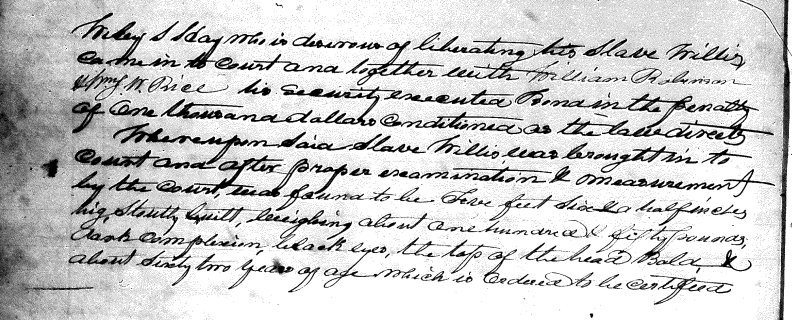 Wiley S Hay who is desirous of liberating his Slave Willis
came in to court and together with William Robinson
& Wm W. Price his security executed Bond in the penalty
of one thousand dollars conditioned as the law directs
Whereupon said Slave Willis, was brought in to
court and after proper examination & measurement
by the court, was found to be five feet six & a half inches
high, Stoutly built, weighing about one hundred & fifty pounds,
dark complexion, black eyes, the top of the head Bald, &
about sixty two years of age which is ordered to be certified